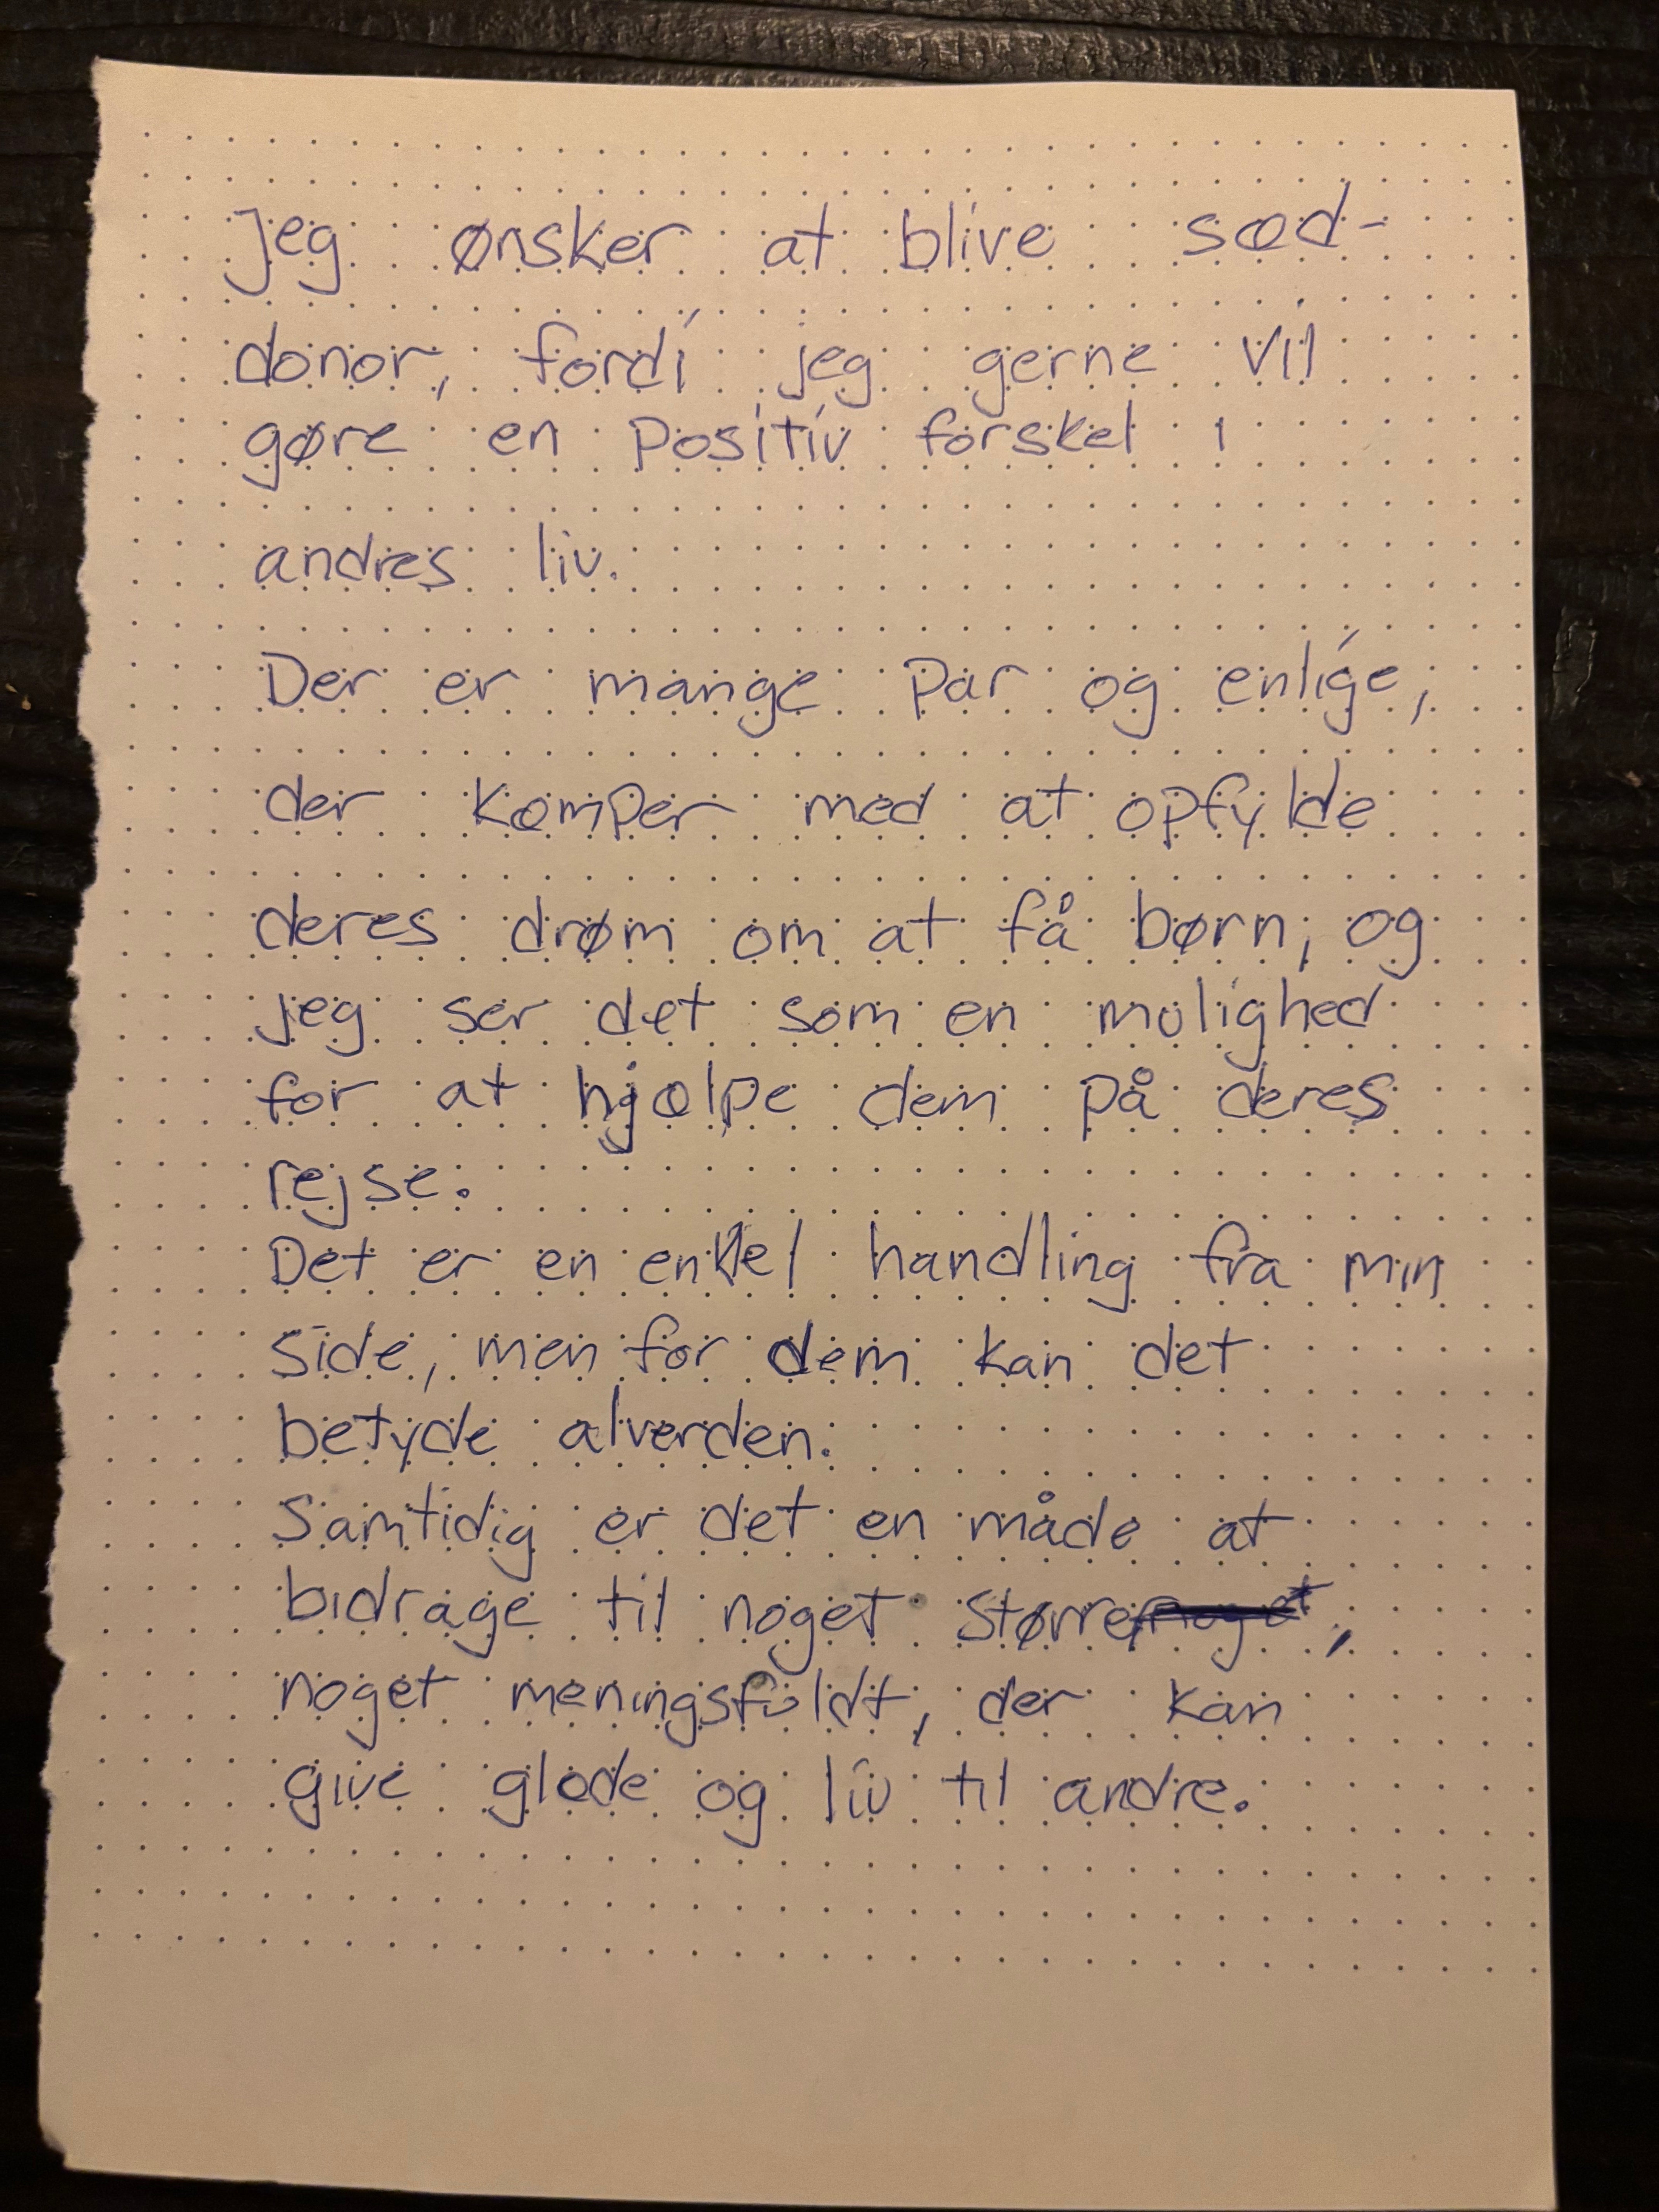 Jeg ønsker at blive sæd-
donor, fordi jeg gerne vil
gøre en positiv forskel i
andres liv.
Der er mange par og enlige,
der kæmper med at opfylde
deres drøm om at få børn, og
jeg ser det som en mulighed
for at hjælpe dem på deres
rejse.
Det er en enkel handling fra min
side, men for dem kan det
betyde alverden.
Samtidig er det en måde at
bidrage til noget større,
noget meningsfuldt, der kan
give glæde og liv til andre.